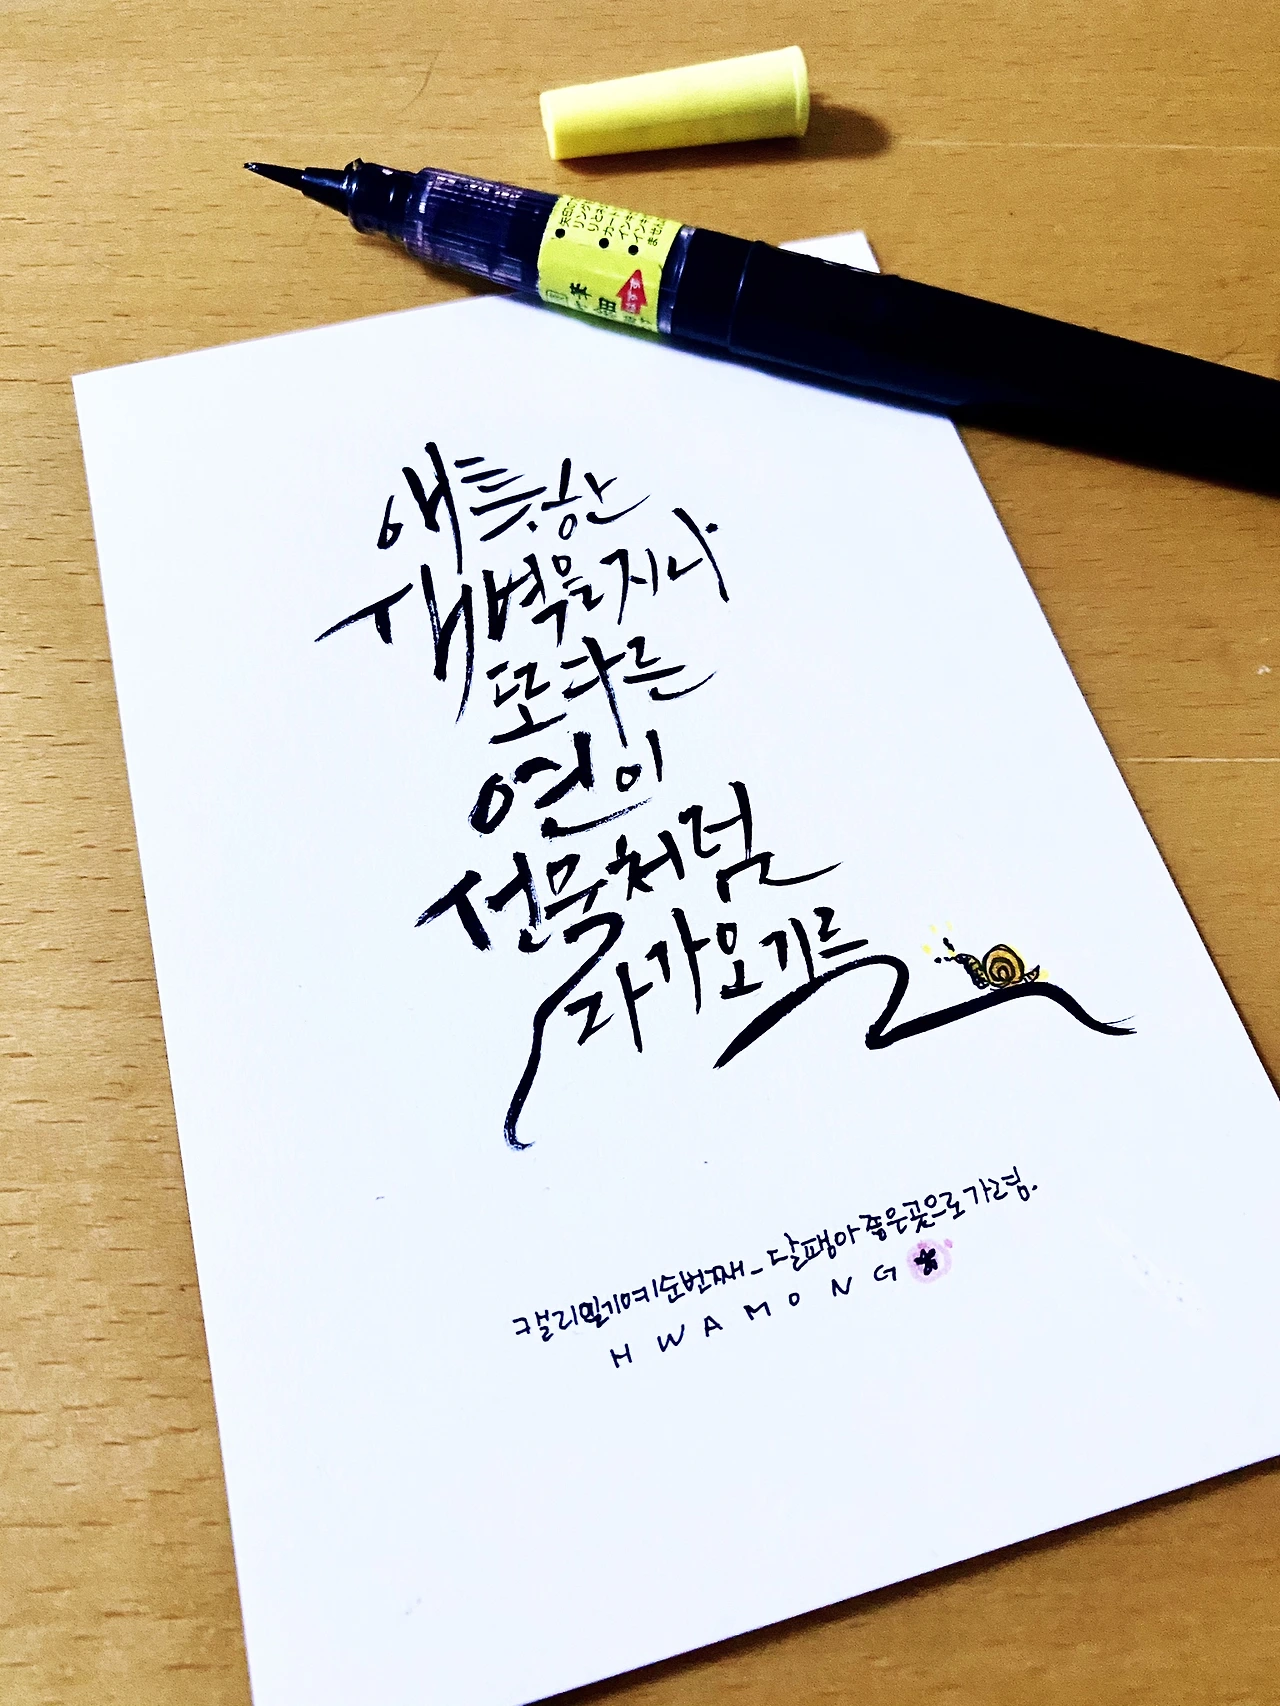 애틋한
새벽을 지나
또 다른
연이
선물처럼
다가오기를
캘리일기 예순번째_달팽아 좋은곳으로 가렴.
HWAMONG